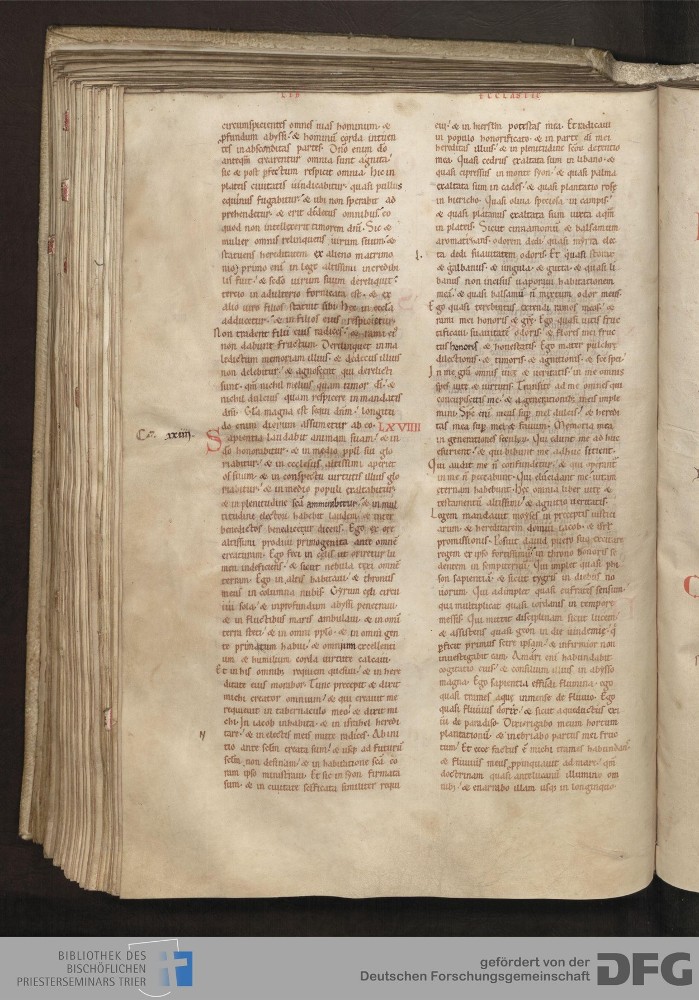 LIB
ECCLASTIC
circumspicientes omnes uias hominum· &
pfundum abyssi· & hominū corda intuen
tes in absconditas partes· Dño enim dō
anteqm̄ crearentur omnia sunt agnita·
sic & post pfectum respicit omnia· Hic in
plateis ciuitatis uindicabitur· quasi pullus
equinus fugabitur· & ubi non sperabit ap
prehendetur· & erit dedecus omnibus· eo
quod non intellexerit timorem dñi· Sic &
mulier omnis relinquens uirum suum· &
statuens hereditatem ex alieno matrimo
nio· primo enī in lege altissimi incredibi
lis fuit· & sedō uirum suum dereliquit·
tercio in adulterio fornicata est· & ex
alio uiro filios statuit sibi· Hec in ecclā
adducetur· & in filios eius respicietur·
Non tradent filii eius radices· & rami ei
non dabunt fructum· Derelinquet in ma
ledictum memoriam illius· & dedecus illius
non delebitur· & agnoscent qui derelicti
sunt· qm̄ nichil melius quam timor dī· &
nichil dulcius quam respicere in mandatis
dñi· Gła magna est sequi dñm· longitu
do enim dierum assumetur ab eo· LXVIIII
Cᵐ. xxiiij.
Sapientia laudabit animam suam· & in
dō honorabitur· & in medio ppli sui glo
riabitur· & in ecclesiis altissimi aperiet
os suum· & in conspectu uirtutis illius glo
riabitur· & in medio populi exaltabitur·
& in plenitudine scā ammirabitur· & in mul
titudine electorū habebit laudem· & inter
benedictos benedicetur dicens· Ego ex ore
altissimi prodiui primogenita ante omnē
creaturam· Ego feci in celis ut oriretur lu
men indeficiens· & sicut nebula texi omnē
terram· Ego in altis habitaui· & thronus
meus in columna nubis· Gyrum celi circu
iui sola· & in profundum abyssi penetraui·
& in fluctibus maris ambulaui· & in omī
terra steti· & in omni pplo· & in omni gen
te primatum habui· & omnium excellenti
um & humilium corda uirtute calcaui·
Et in his omnibꝫ requiem quesiui· & in here
ditate eius morabor· Tunc precepit & dixit
michi creator omnium· & qui creauit me
requieuit in tabernaculo meo· & dixit mi
chi· In iacob inhabita· & in israhel heredi
tare· & in electis meis mitte radices· Ab ini
tio ante sc̄lm creata sum· & usqꝫ ad futurū
sc̄lm non desinam· & in habitatione scā co
ram ipso ministraui· Et sic in syon firmata
sum· & in ciuitate scificata similiter requi
eui· & in hierlm potestas mea· Et radicaui
in populo honorificato· & in parte dī mei
hereditas illius· & in plenitudine scōꝝ detentio
mea· Quasi cedrus exaltata sum in libano· &
quasi cypressus in monte syon· & quasi palma
exaltata sum in cades· & quasi plantatio rosę
in hiericho· Quasi oliua speciosa in campis·
& quasi platanus exaltata sum iuxta aqm̄
in plateis· Sicut cinnamomū & balsamum
aromatizans odorem dedi· quasi myrra elec
ta dedi suauitatem odoris· Et quasi storax·
& galbanus· & ungula· & gutta· & quasi li
banus non incisus uaporaui habitationem
meā· & quasi balsamū n̄ mixtum odor meus·
Ego quasi terebintus extendi ramos meos· &
rami mei honoris & grę· Ego quasi uitis fruc
tificaui suauitatē odoris· & flores mei fruc
tus honoris & honestatis· Ego mater pulchrę
dilectionis· & timoris· & agnitionis· & scę spei·
In me grā omnis uitę & ueritatis· in me omnis
spes uitę & uirtutis· Transite ad me omnes qui
concupiscitis me· & a generationibꝫ meis imple
mini· Sps̄ enī meus sup̄ mel dulcis· & heredi
tas mea sup̄ mel & fauum· Memoria mea
in generationes seculoꝝ· Qui edunt me ad huc
esurient· & qui bibunt me adhuc sitient·
Qui audit me n̄ confundetur· & qui operant̄
in me n̄ peccabunt· Qui elucidant me uitam
eternam habebunt· Hec omnia liber uitę· &
testamentū altissimi· & agnitio ueritatis·
Legem mandauit moyses in preceptis iustici
arum· & hereditatem domui iacob· & isrl
promissiones· Posuit dauid puero suo excitare
regem ex ipso fortissimū in throno honoris se
dentem in sempiternū· Qui implet quasi phi
son sapientiā· & sicut tygris in diebus no
uorum· Qui adimplet quasi eufrates sensum·
qui multiplicat quasi iordanis in tempore
messis· Qui mittit disciplinam sicut lucem·
& assistens quasi geon in die uindemię· q̄
pficit primus scire ipsam· & infirmior non
inuestigabit eam· A mari enī habundabit
cogitatio eius· & consilium illius in abysso
magna· Ego sapientia effudi flumina· ego
quasi trames aquę inmensę de fluuio· Ego
quasi fluuius dorix· & sicut aqueductus exi
ui de paradiso· Dixi· rigabo meum hortum
plantationū· & inebriabo partus mei fruc
tum· Et ecce factus ē michi trames habundans·
& fluuius meus ppinquauit ad mare· qm̄
doctrinam quasi antelucanū illumino om
nibꝫ· & enarrabo illam usqꝫ in longinquo·
BIBLIOTHEK DES
BISCHÖFLICHEN
PRIESTERSEMINARS TRIER
gefördert von der
Deutschen Forschungsgemeinschaft
DFG